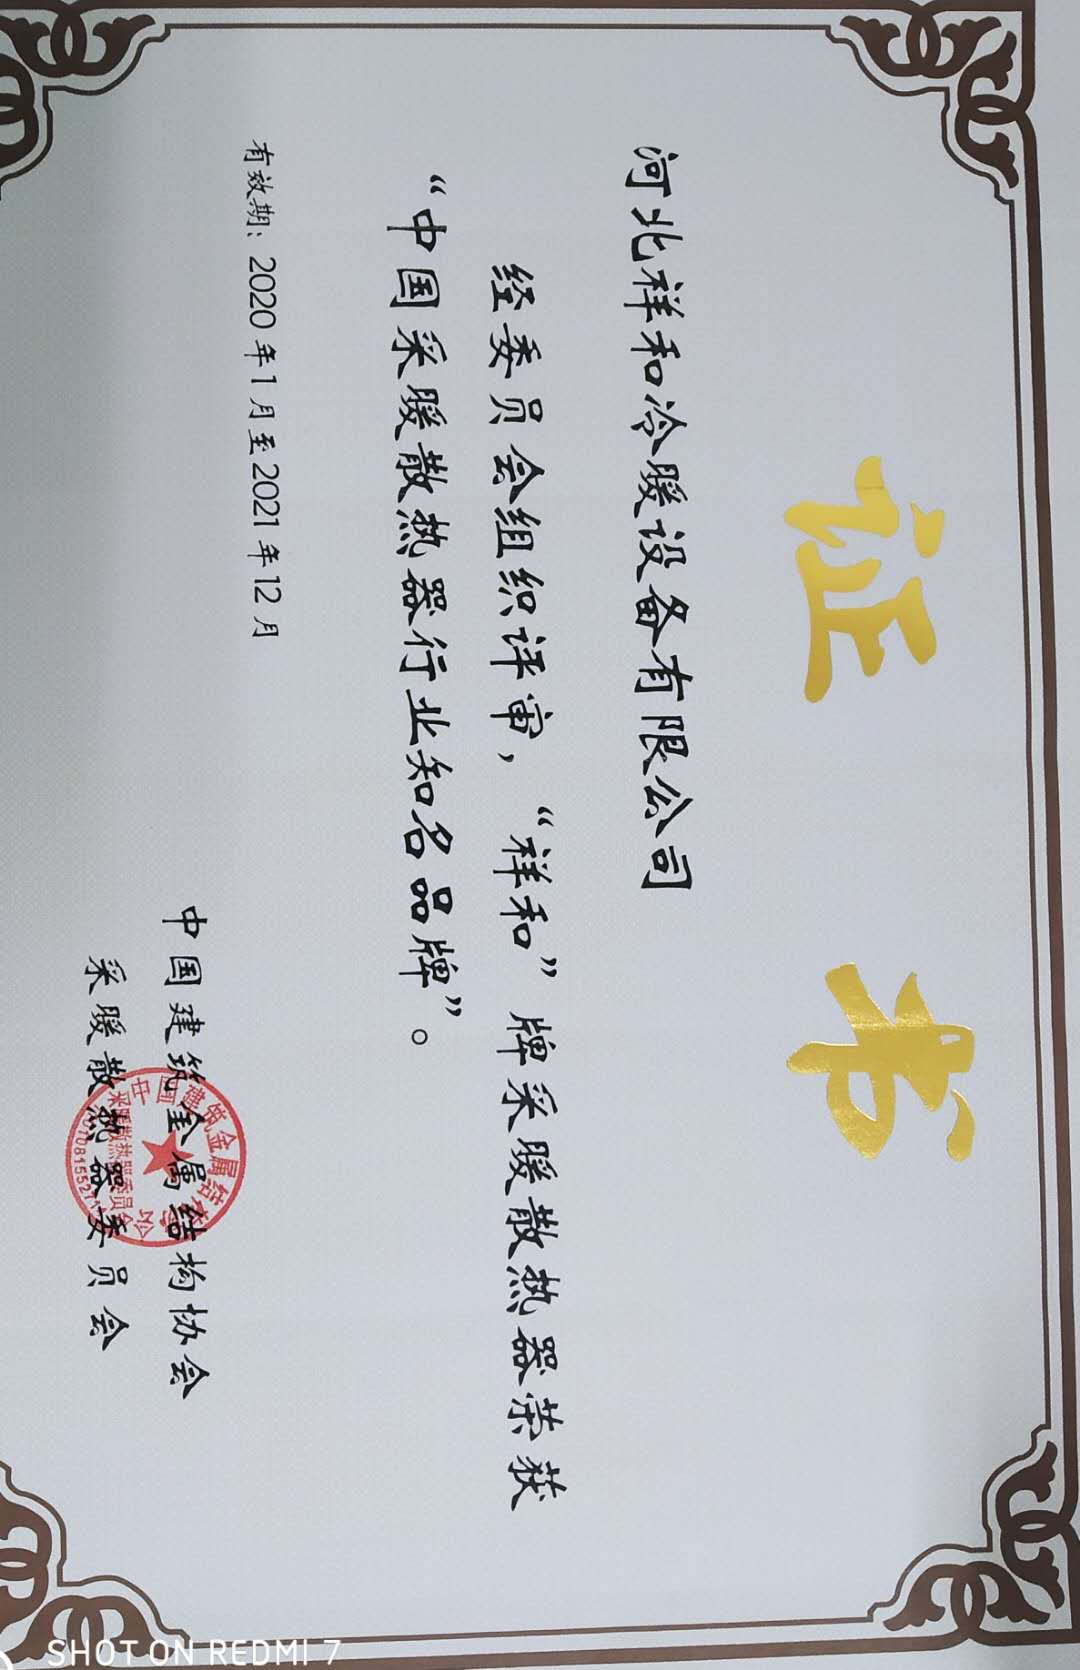 证书
河北祥和冷暖设备有限公司
经委员会组织评审，“祥和”牌采暖散热器荣获
“中国采暖散热器行业知名品牌”。
有效期：2020年1月至2021年12月
中国建筑金属结构协会
采暖散热器委员会
中国建筑金属结构协会
采暖散热器委员会
SHOT ON REDMI 7